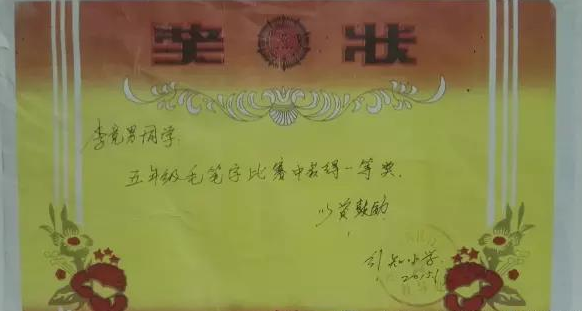 奖 状
李竞男同学:
五年级毛笔字比赛中获得一等奖.
以资鼓励
小学